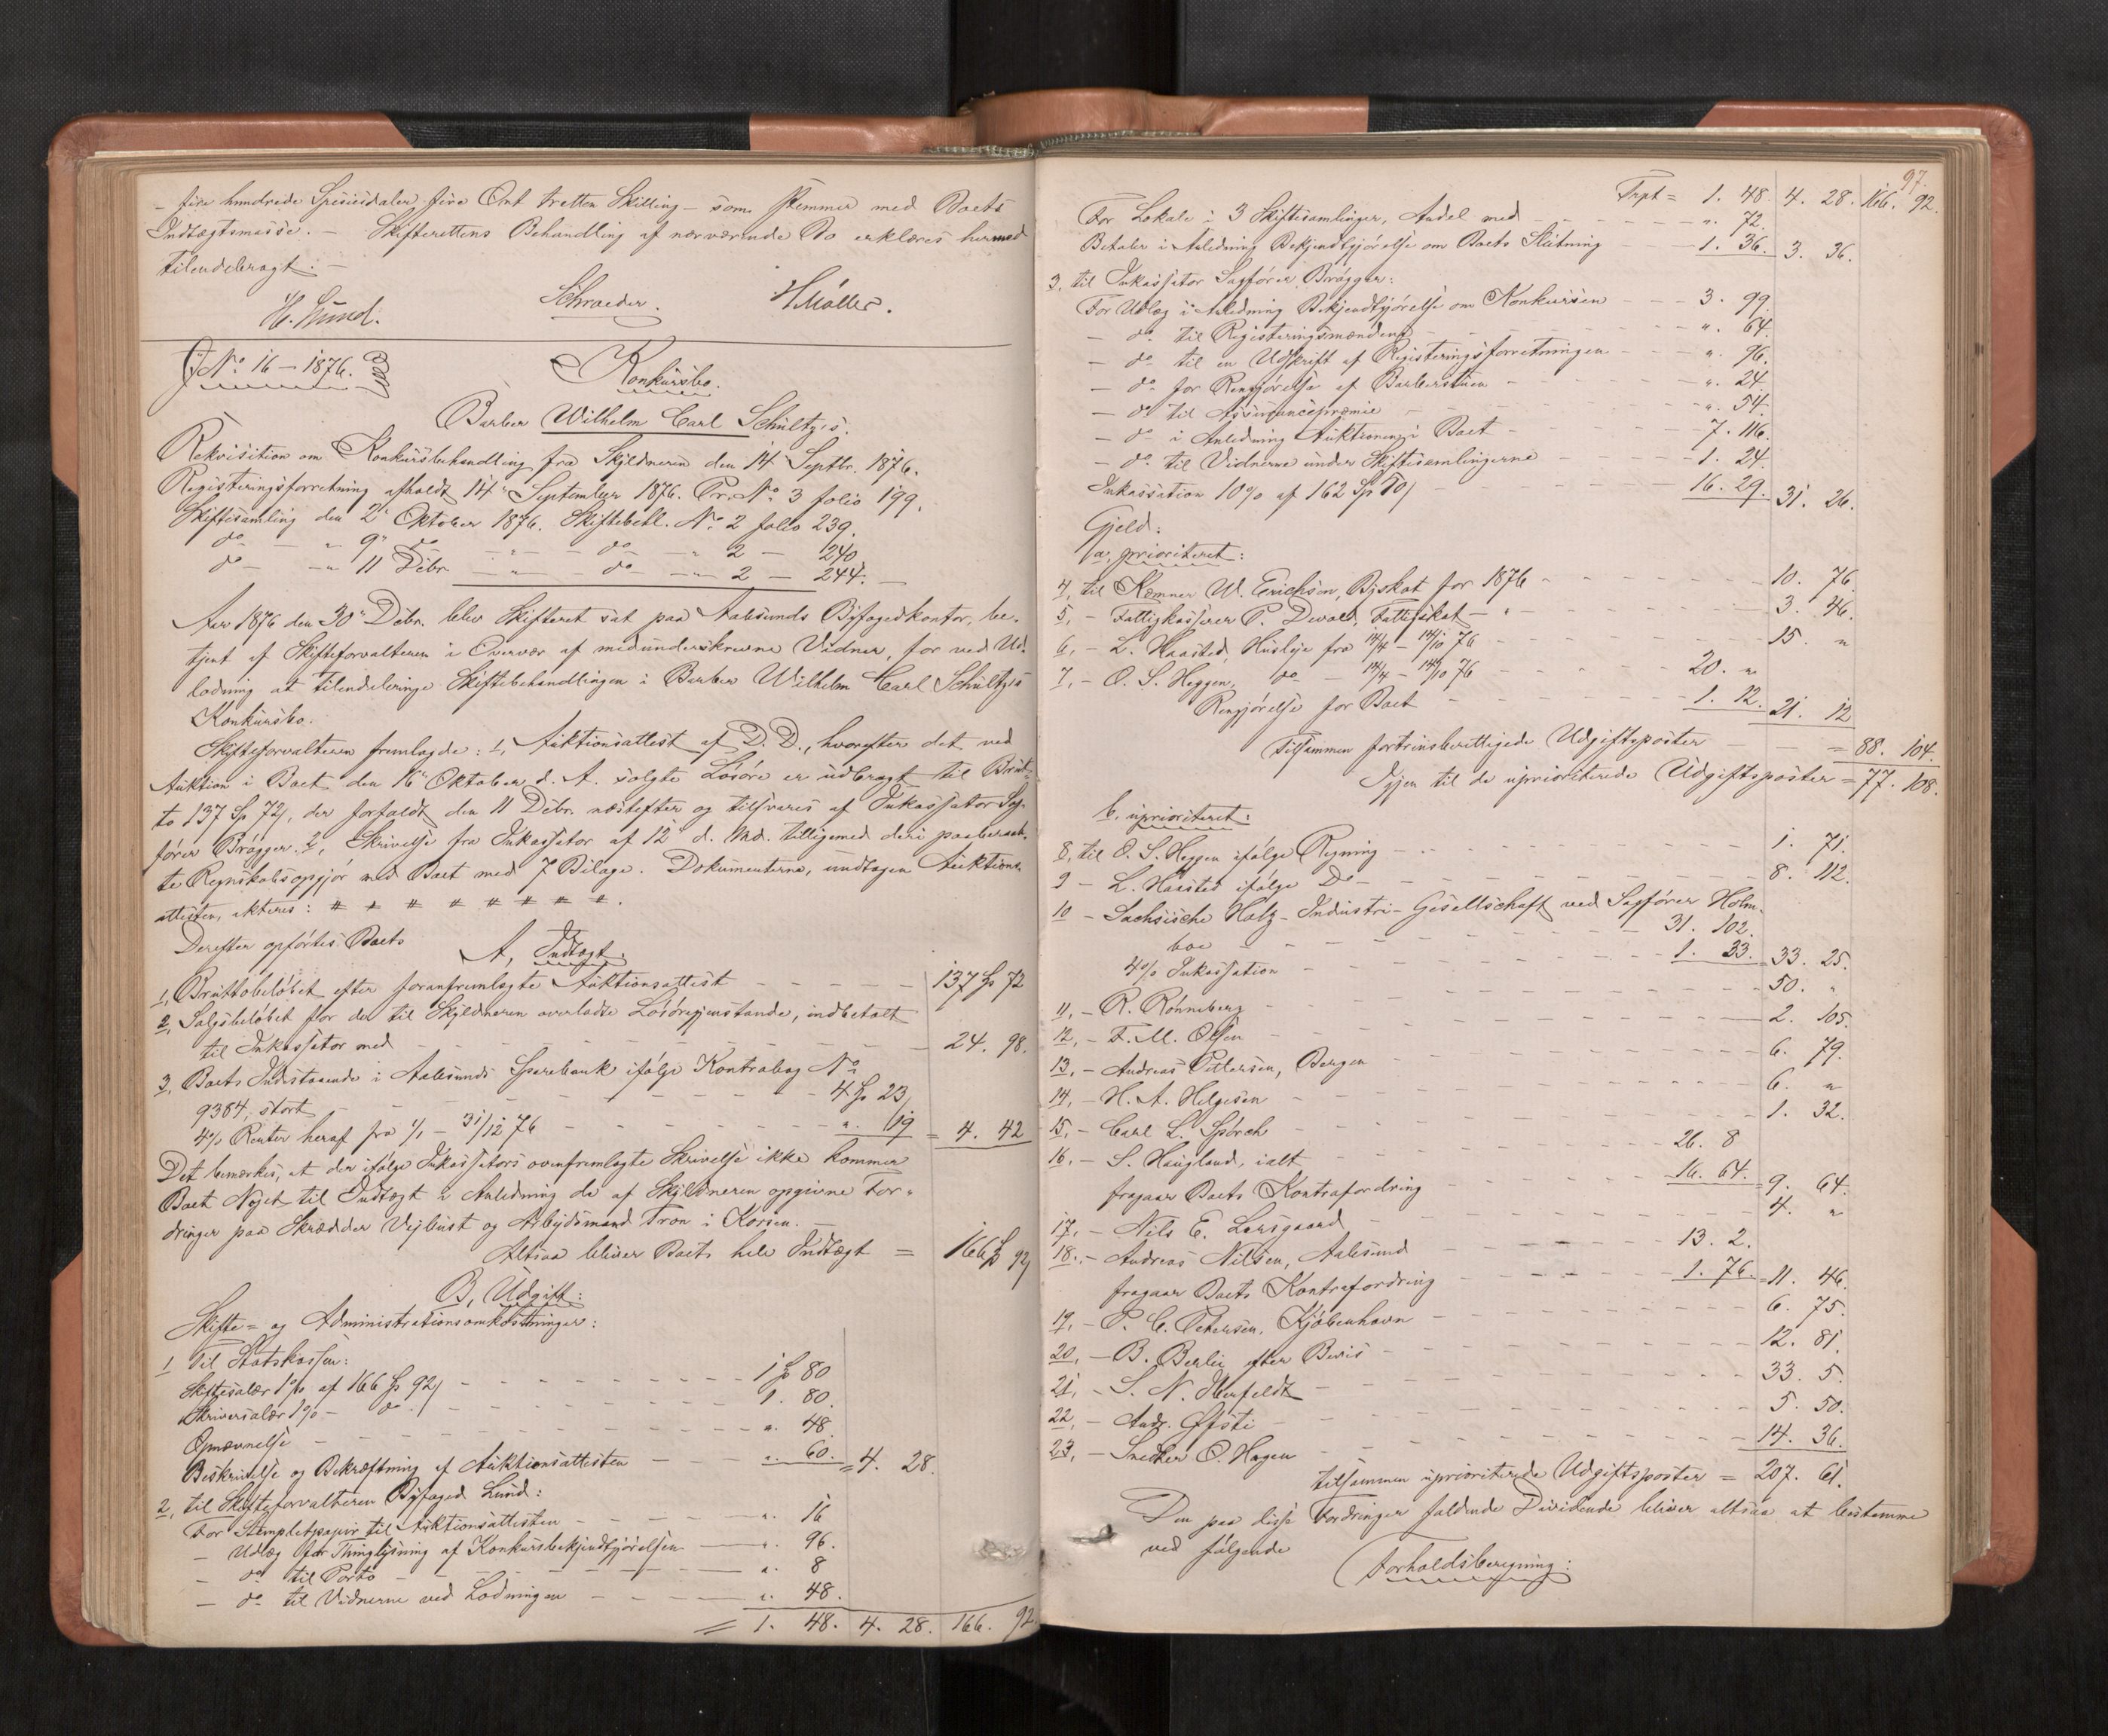 - fire hundrede Speciesdaler fire Ort tretten Skilling - som stemmer med Boets
Indtægtsmasse. - Skifterettens Behandling af nærværende Bo erklæres hermed
tilendebragt. -
H. Lund. Schroeder. H Møller.
J No 16 - 1876. Konkursbo.
Barber Wilhelm Carl Schultz's.
Rekvisition om Konkursbehandling fra Skyldneren den 14 Septbr. 1876.
Registeringsforretning afholdt 14 September 1876. Pr. No 3 folio 199.
Skiftesamling den 2 Oktober 1876. Skiftebehl. No 2 folio 239.
do - " 9" do - " - do - " 2 - 240
do - " 11 Debr - " - do - " 2 - 244. -
Aar 1876 den 30" Debr. blev Skifteret sat paa Aalesunds Byfogedkontor, be-
tjent af Skifteforvalteren i Overvær af medunderskrevne Vidner, for ved Ud-
lodning at tilendebringe Skiftebehandlingen i Barber Wilhelm Carl Schultz's
Konkursbo.
Skifteforvalteren fremlagde: 1, Auktionsattest af D. D., hvorefter det ved
Auktion i Boet den 16" Oktober d. A. solgte Løsøre er udbragt til Brut-
to 137 Sp 72/, der forfaldt den 11 Debr. næstefter og tilsvares af Inkassator Sag-
fører Brøgger. 2, Skrivelse fra Inkassator af 12" d. Md. tilligemed deri paaberaab-
te Regnskabsopgjør med Boet med 7 Bilage. Dokumenterne, undtagen Auktions-
attesten, akteres: # # # # # # # #.
Derefter opførtes Boets
A, Indtægt.
1, Bruttobeløbet efter foranfremlagte Auktionsattest - - - - - 137 Sp 72
2, Salgsbeløbet for de til Skyldneren overladte Løsøregjenstande, indbetalt
til Inkassator med - - - - - 24. 98.
3, Boets Indestaaende i Aalesunds Sparebank ifølge Kontrabog No
9384, stort - - - - - 4 Sp 23/
4% Renter heraf fra 1/1 - 31/12 76 - - - - - ". 19 = 4. 42
Det bemærkes, at der ifølge Inkassators ovenfremlagte Skrivelse ikke kommer
Boet Noget til Indtægt i Anledning de af Skyldneren opgivne For-
dringer paa Skrædder Vejbust og Arbejdsmand Tron i Korsen. -
Altsaa bliver Boets hele Indtægt = 166 Sp 92/
B, Udgift:
Skifte- og Administrationsomkostninger:
1 Til Statskassen:
Skiftesalær 1% af 166 Sp 92/ - - - - - 1 Sp 80
Skriversalær 1% - do / - - - - - 1. 80.
Opnævnelse - - - - - ". 48
Beskrivelse og Bekræftning af Auktionsattesten - - - ". 60. = 4. 28.
2, til Skifteforvalteren Byfoged Lund:
For Stempletpapir til Auktionsattesten - - - - - ". 16
- Udlæg for Thinglysning af Konkursbekjendtgjørelsen - ". 96.
- do til Porto - - - - - ". 8
- do til Vidnerne ved Lodningen - - - ". 48.
= 1. 48. 4. 28. 166. 92
97.
Trpt = 1. 48. 4. 28. 166. 92.
For Lokale i 3 Skiftesamlinger, Andel med - - - - ". 72.
Betaler i Anledning Bekjendtgjørelse om Boets Slutning - - 1. 36. 3. 36.
3, til Inkassator Sagfører Brøgger:
For Udlæg i Anledning Bekjendtgjørelse om Konkursen - - - 3. 99.
- do til Registeringsmændene - - - - - ". 64.
- do til en Udskrift af Registeringsforretningen - - - ". 96.
- do for Rengjørelse af Barberstuen - - - - - ". 24.
- do til Assurancepræmie - - - - - ". 54.
- do i Anledning Auktionen i Boet - - - - - 7. 116.
- do til Vidnerne under Skiftesamlingerne - - - - 1. 24.
Inkassation 10% af 162 Sp 50/ - - - - - 16. 29. 31. 26.
Gjeld:
a, prioriteret:
4, til Kæmner W. Erichsen, Byskat for 1876 - - - - - 10. 76.
5, - Fattigkasserer P. Devold, Fattigskat - " - - - - 3. 46.
6, - L. Haasted, Husleje fra 14/4 - 14/10 76 - - - - - 15. "
7, - O. S. Heggen, do - 14/4 - 14/10 76 - - - - 20. "
Rengjørelse for Boet - - - - - 1. 12. 21. 12
Tilsammen fortrinsberettigede Udgiftsposter - - = 88. 104.
Igjen til de uprioriterede Udgiftsposter = 77. 108.
b. uprioriteret:
8, til O. S. Heggen ifølge Regning - - - - - 1. 71.
9 - L. Haasted ifølge Do - - - - - 8. 112.
10 - Sachsische Holz-Industri-Gesellschaft ved Sagfører Holm-
boe - - - - - 31. 102.
4% Inkassation - - - - - 1. 33. = 33. 25.
11, - R. Rønneberg - - - - - 50. "
12, - F. M. Olsen - - - - - 2. 105.
13, - Andreas Pettersen, Bergen - - - - - 6. 79.
14, - H. A. Helgesen - - - - - 6. "
15, - Carl L. Spörck - - - - - 1. 32.
16, - S. Haugland, ialt - - - - - 26. 8
fragaar Boets Kontrafordring - - - - 16. 64. = 9. 64.
17, - Nils E. Larsgaard - - - - - 4. "
18, - Andreas Nilsen, Aalesund - - - - - 13. 2.
fragaar Boets Kontrafordring - - - - 1. 76. = 11. 46.
19, - P. C. Petersen, Kjøbenhavn - - - - - 6. 75.
20, - B. Berlie efter Bevis - - - - - 12. 81.
21, - S. N. - - - - - 33. 5.
22, - Andr. Øfsti - - - - - 5. 50.
23, - Snedker O. Hagen - - - - - 14. 36.
tilsammen uprioriterede Udgiftsposter = 207. 61.
Den paa disse Fordringer faldende Dividende bliver altsaa at bestemme
ved følgende
Forholdsberegning: